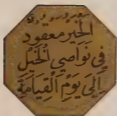 الخير معقود
في نواصي الخيل
إلى يوم القيامة